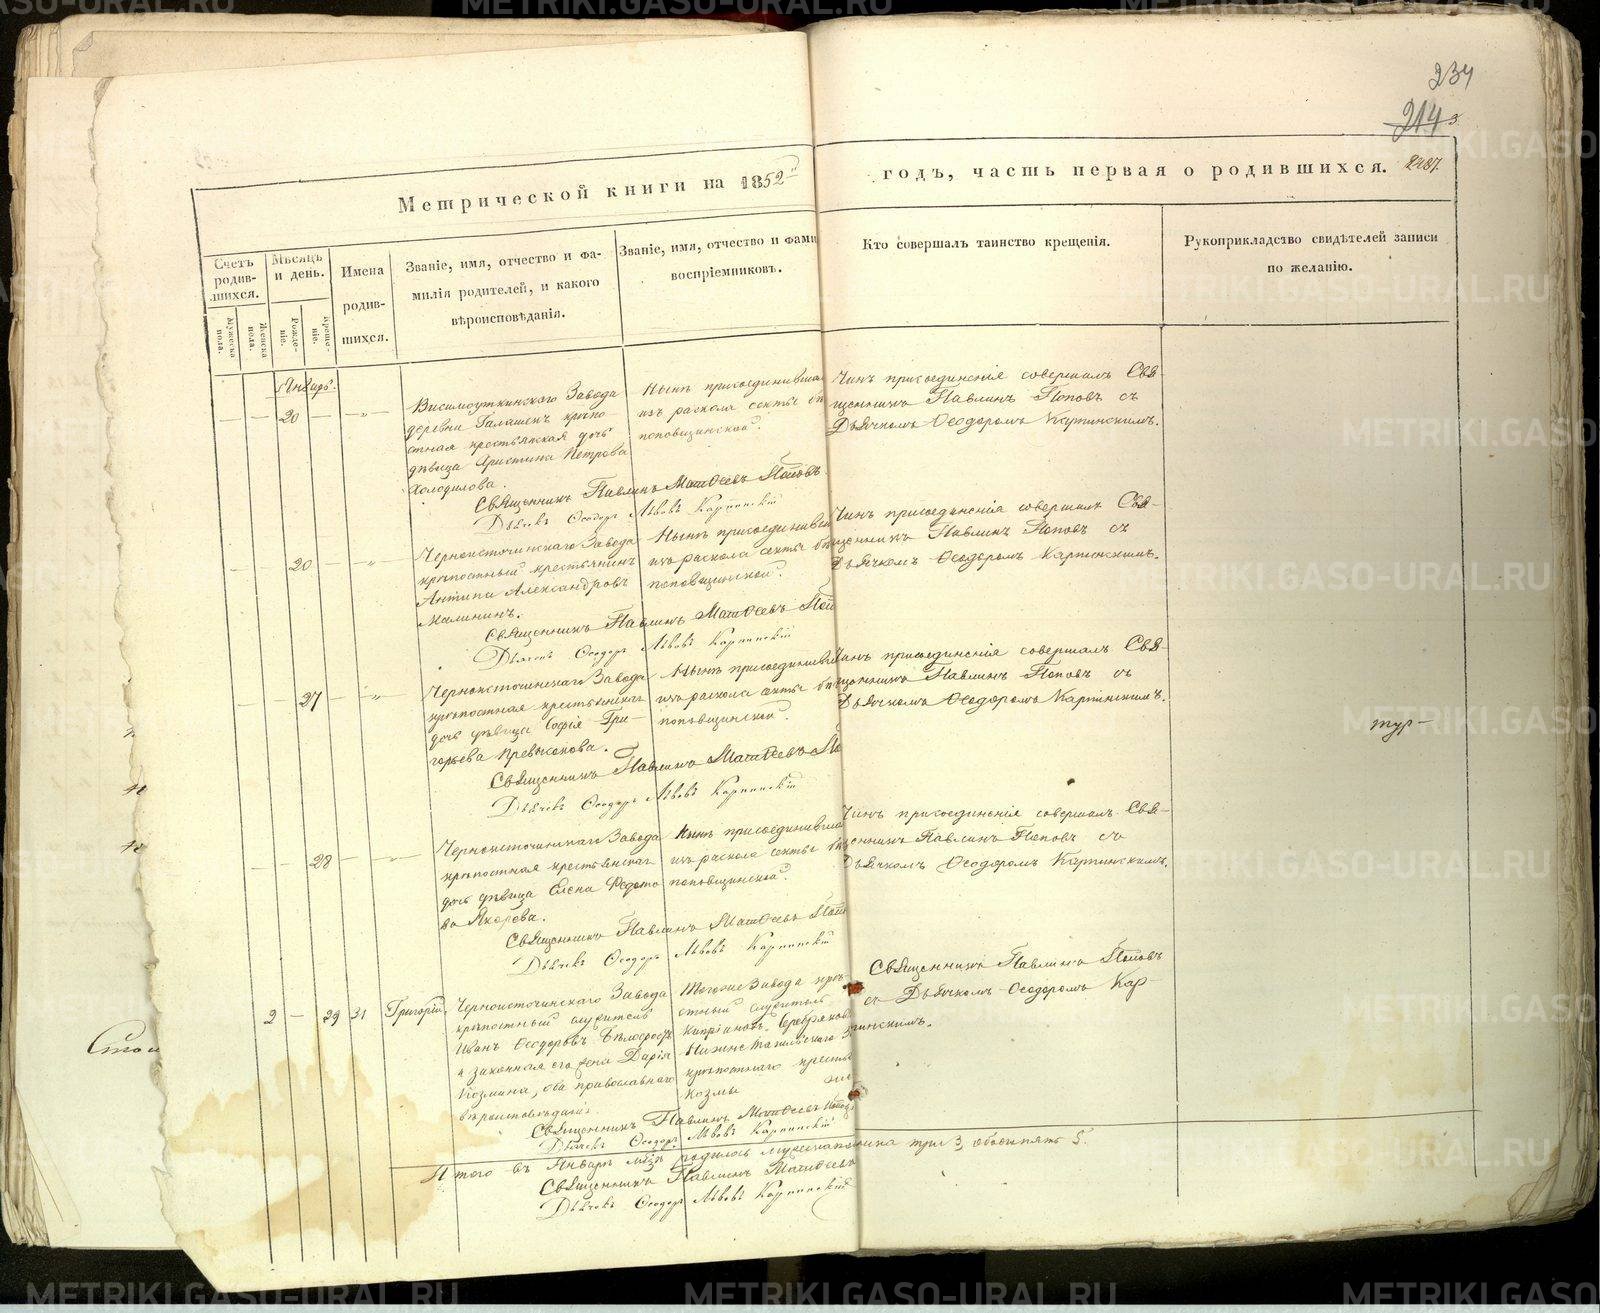 234
214
Метрической книги на 1852й годъ, часть первая о родившихся. 2487.
Счетъ родив-шихся.
Мужеска пола.
Женска пола.
Мѣсяцъ и день.
Рожде-ніе.
Креще-ніе.
Имена родив-шихся.
Званіе, имя, отчество и фа-
милія родителей, и какого
вѣроисповѣданія.
Званіе, имя, отчество и фами
воспріемниковъ.
Кто совершалъ таинство крещенія.
Рукоприкладство свидѣтелей записи
по желанію.
Январь.
20
Висимоуткинскаго Завода
деревни Галашекъ крѣпо
стная крестьянская дочь
дѣвица Христина Петрова
Холодилова.
Нынѣ присоединивша
изъ раскола секты бе
поповщинской.
Чинъ присоединенія совершалъ Свя-
щенникъ Павлинъ Поповъ съ
Дьячкомъ Ѳеодоромъ Карпинскимъ.
Священникъ Павлинъ Матѳеевъ Поповъ
Дьячекъ Ѳеодоръ Львовъ Карпинскій
20
Черноисточинскаго Завода
крѣпостный крестьянинъ
Антипа Александровъ
Малининъ.
Нынѣ присоединивш
изъ раскола секты бе
поповщинской.
Чинъ присоединенія совершалъ Свя-
щенникъ Павлинъ Поповъ съ
Дьячкомъ Ѳеодоромъ Карпинскимъ.
Священникъ Павлинъ Матѳеевъ Поп
Дьячекъ Ѳеодоръ Львовъ Карпинскій
27
Черноисточинскаго Завода
крѣпостная крестьянская
дочь дѣвица Софія Гри-
горьева
Нынѣ присоединивш
изъ раскола секты бе
поповщинской.
Чинъ присоединенія совершалъ Свя-
щенникъ Павлинъ Поповъ съ
Дьячкомъ Ѳеодоромъ Карпинскимъ.
Священникъ Павлинъ Матѳеевъ По
Дьячекъ Ѳеодоръ Львовъ Карпинскій
28
Черноисточинскаго Завода
крѣпостная крестьянская
дочь дѣвица Елена Федото
ва
Нынѣ присоединивша
изъ раскола секты бе
поповщинской.
Чинъ присоединенія совершалъ Свя-
щенникъ Павлинъ Поповъ съ
Дьячкомъ Ѳеодоромъ Карпинскимъ.
Священникъ Павлинъ Матѳеевъ Поп
Дьячекъ Ѳеодоръ Львовъ Карпинскій
2 29 31 Григорій.
Черноисточинскаго Завода
крѣпостный служитель
Иванъ Ѳеодоровъ
и законная его жена Дарія
Козмина, оба православнаго
вѣроисповѣданія.
Тогоже Завода крѣ-
стный служитель
Кипріанъ
Нижнетагильскаго З
крѣпостнаго кресть
Козмы
Священникъ Павлинъ Поповъ
съ Дьячкомъ Ѳеодоромъ Кар-
пинскимъ.
Священникъ Павлинъ Матѳеевъ Попов
Дьячекъ Ѳеодоръ Львовъ Карпинскій
Итого въ Январѣ мцѣ родилось три 3, обоего 5.
Священникъ Павлинъ Матѳеевъ
Дьячекъ Ѳеодоръ Львовъ Карпинскій
METRIKI.GASO-URAL.RU